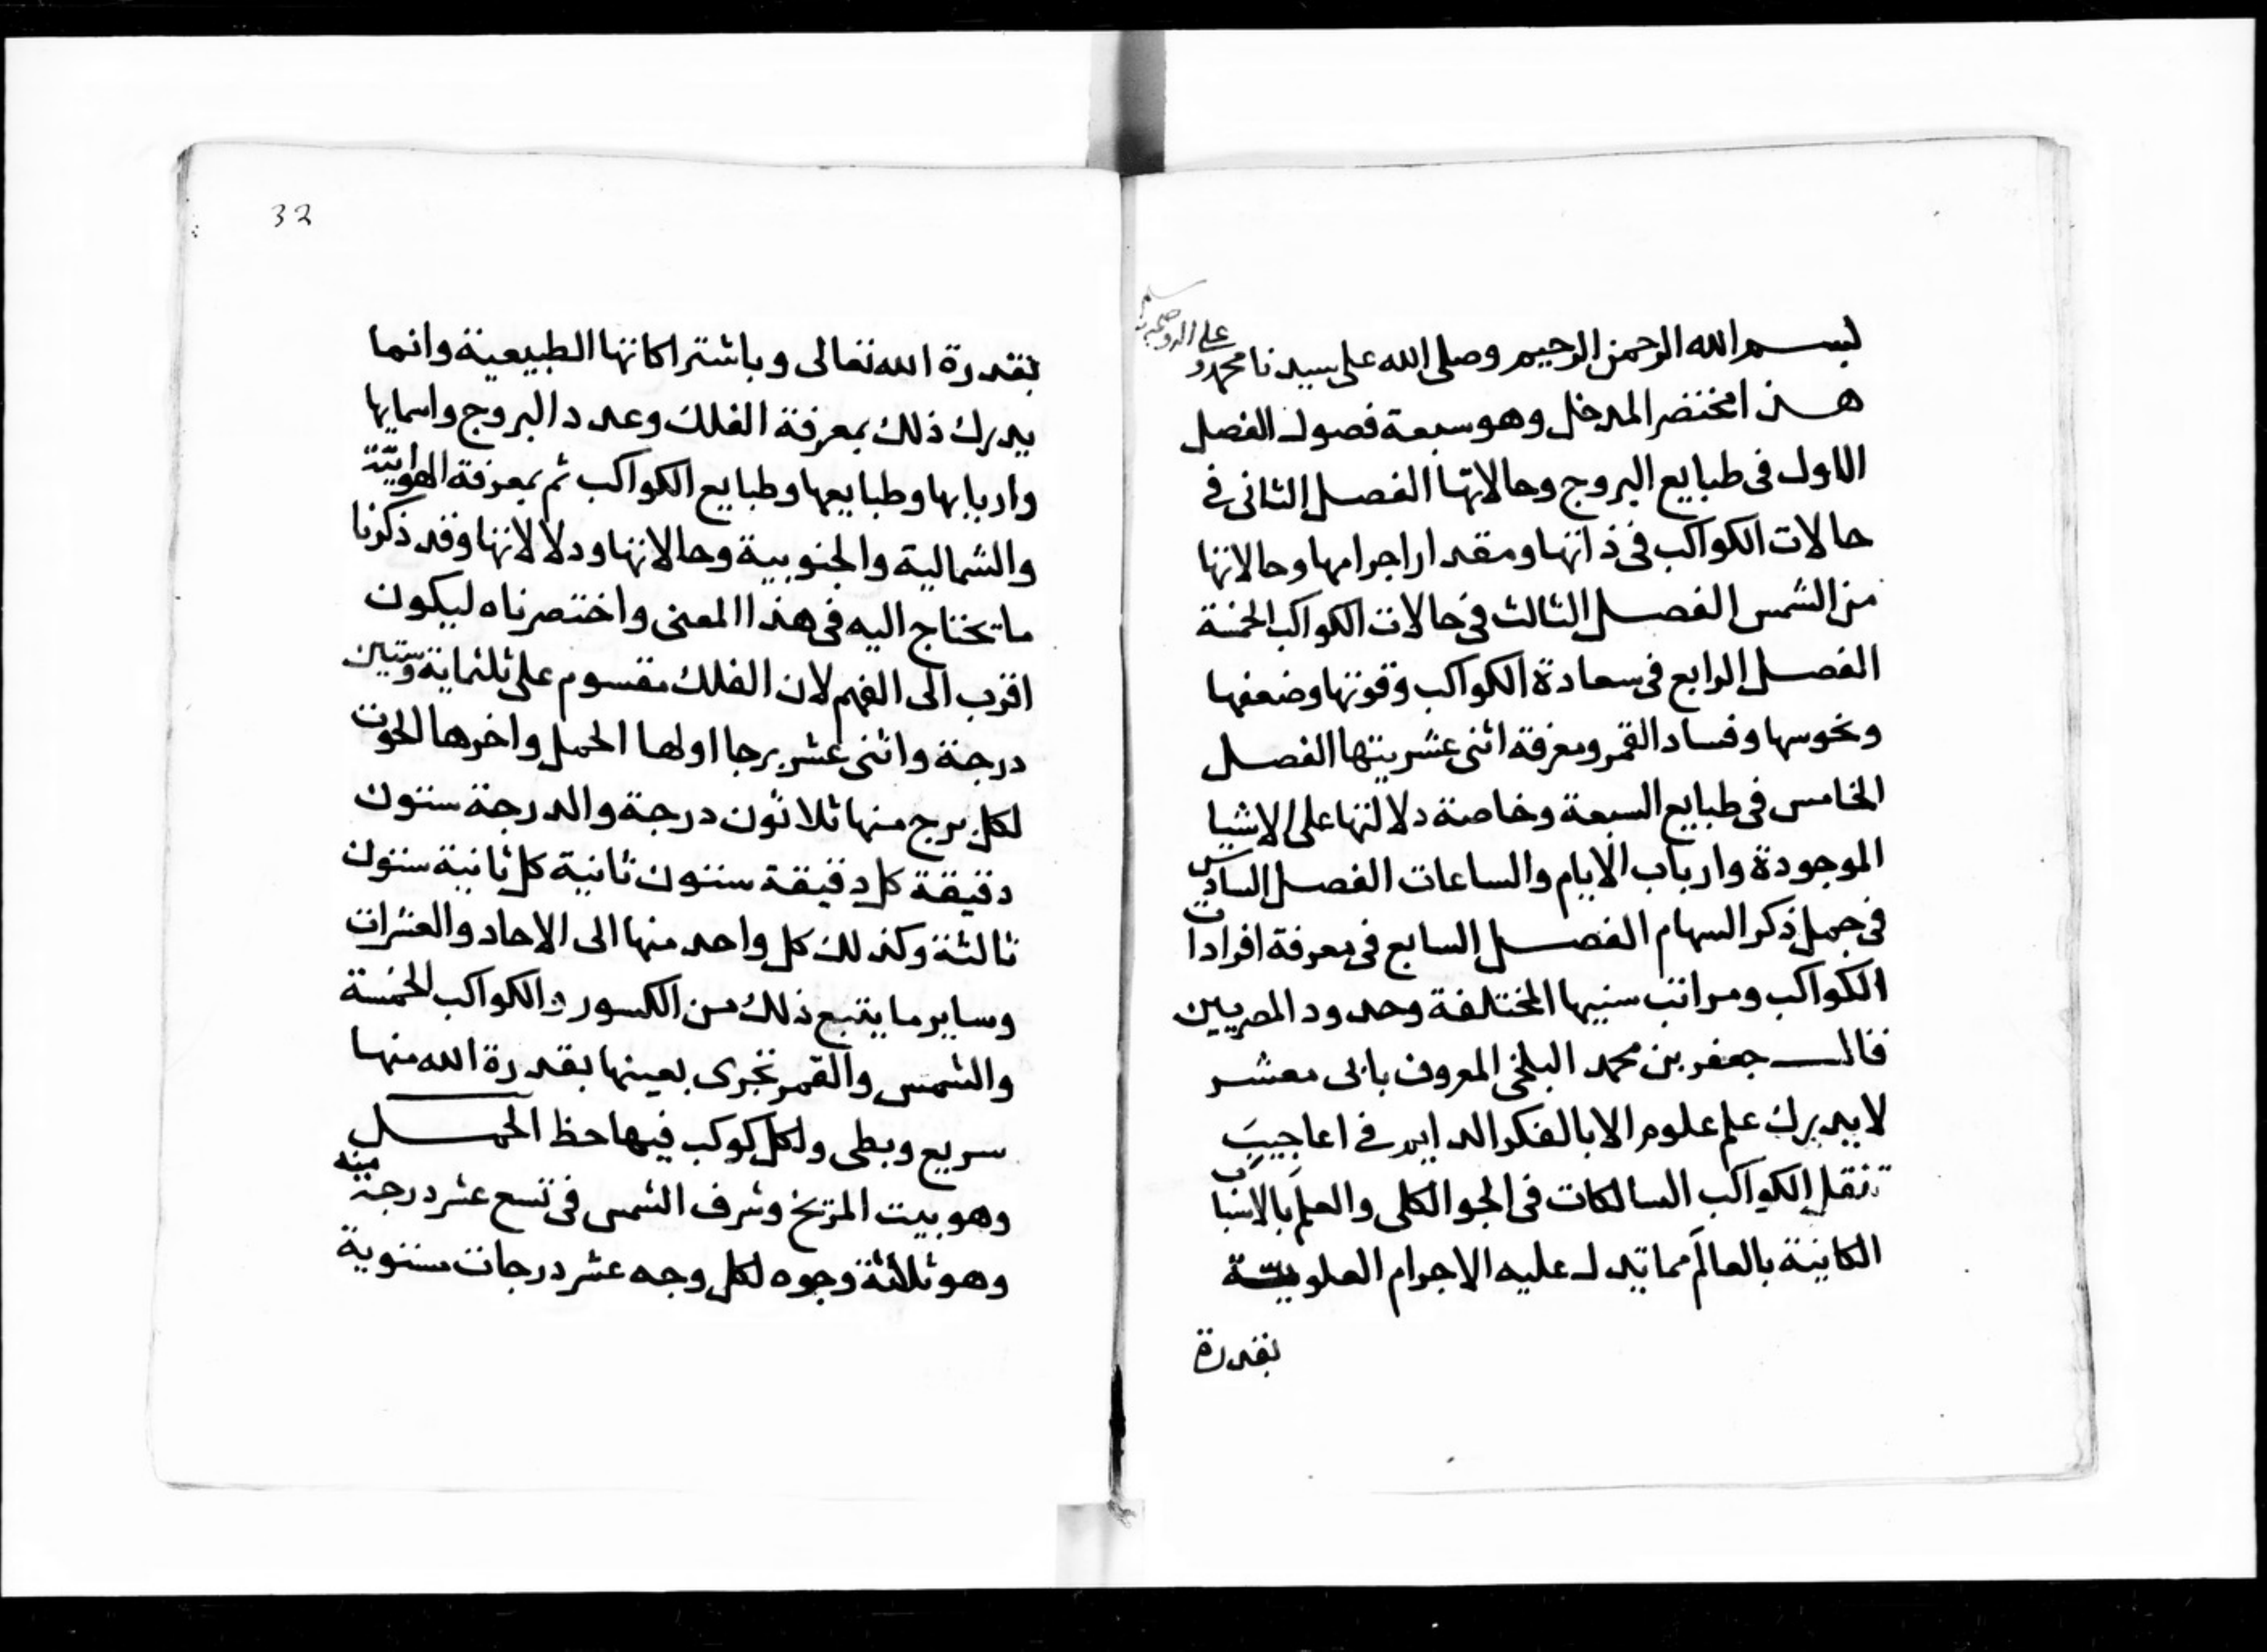 بسم الله الرحمن الرحيم وصلى الله على سيدنا محمد و
على اله وصحبه وسلم
هذا مختصر المدخل وهو سبعة فصول الفصل
الاول فى طبايع البروج وحالاتها الفصل الثانى فى
حالات الكواكب فى ذاتها ومقدار اجرامها وحالاتها
من الشمس الفصل الثالث فى حالات الكواكب الخمسة
الفصل الرابع فى سعادة الكواكب وقوتها وضعفها
ونحوسها وفساد القمر ومعرفة اثنى عشريتها الفصل
الخامس فى طبايع السبعة وخاصة دلالتها على الاشيا
الموجودة وارباب الايام والساعات الفصل السادس
فى جمل ذكر السهام الفصل السابع فى معرفة افرادات
الكواكب ومراتب سنيها المختلفة وحدود المصريين
قال جعفر بن محمد البلخى المعروف بابى معشر
لا يدرك علم علوم الا بالفكر الدايم فى اعاجيب
تنقل الكواكب السالكات فى الجو الكلى والعلم بالاشيا
الكاينة بالعالم مما تدل عليه الاجرام العلوية
بقدرة
32
بقدرة الله تعالى وباشتراكاتها الطبيعية وانما
يدرك ذلك بمعرفة الفلك وعدد البروج واسمايها
واربابها وطبايعها وطبايع الكواكب ثم بمعرفة الهوايية
والشمالية والجنوبية وحالاتها ودلالاتها وقد ذكرنا
ما تحتاج اليه فى هذا المعنى واختصرناه ليكون
اقرب الى الفهم لان الفلك مقسوم على ثلثماية وستين
درجة واثنى عشر برجا اولها الحمل واخرها الحوت
لكل برج منها ثلاثون درجة والدرجة ستون
دقيقة كل دقيقة ستون ثانية كل ثانية ستون
ثالثة وكذلك كل واحد منها الى الاحاد والعشرات
وساير ما يتبع ذلك من الكسور والكواكب الخمسة
والشمس والقمر تجرى بعينها بقدرة الله منها
سريع وبطى ولكل كوكب فيها حظ الحمل
وهو بيت المريخ وشرف الشمس فى تسع عشر درجة منه
وهو ثلاثة وجوه لكل وجه عشر درجات مستوية